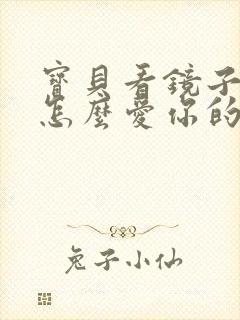 寶貝看鏡子
怎麼愛你的
兔子小仙